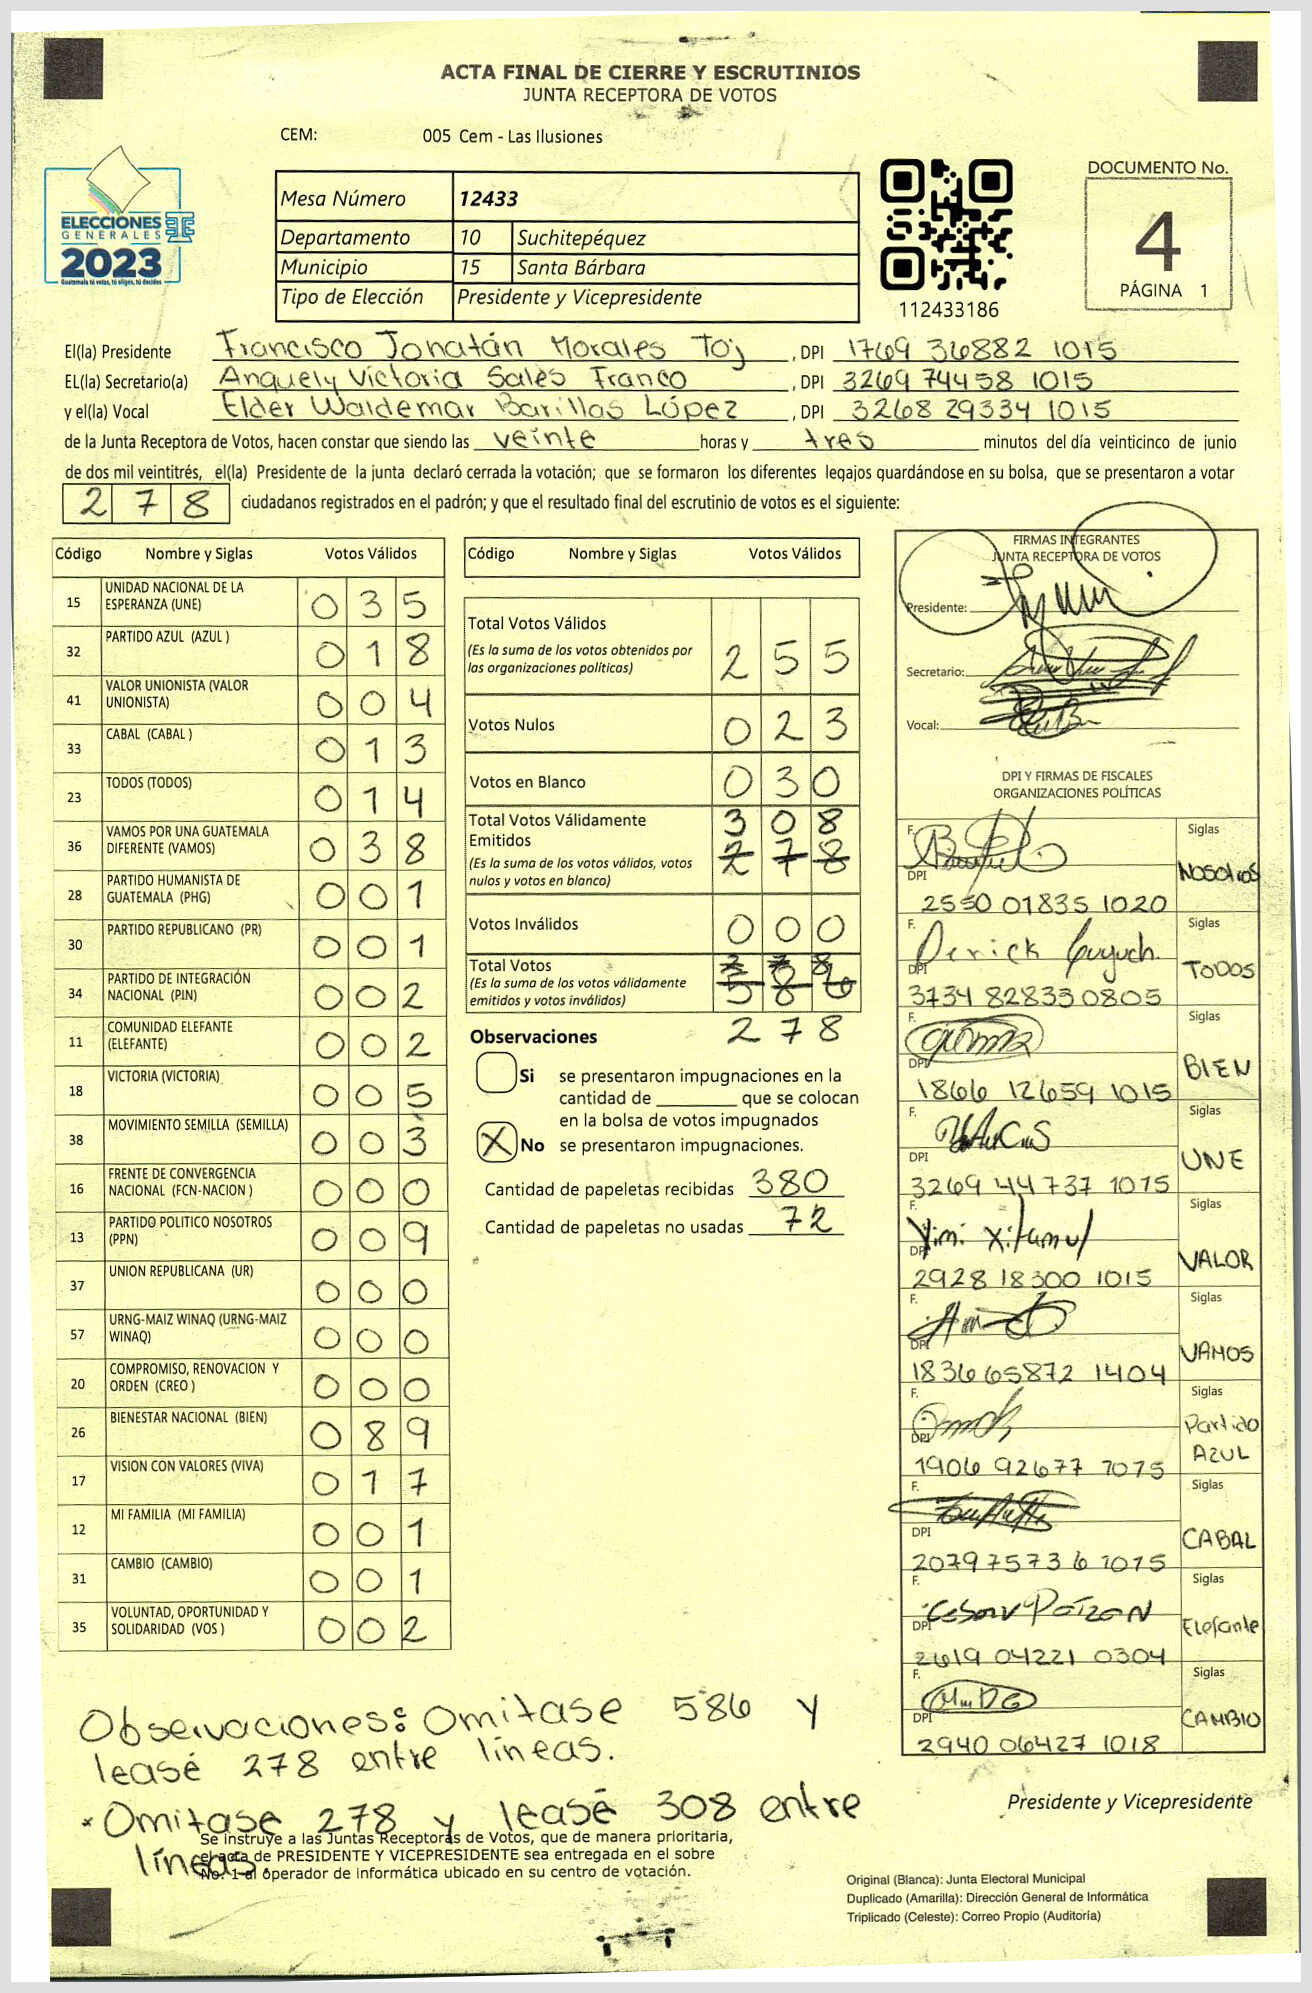 ACTA FINAL DE CIERRE Y ESCRUTINIOS
JUNTA RECEPTORA DE VOTOS
CEM: 005 Cem - Las Ilusiones
ELECCIONES
GENERALES
2023
Guatemala tú votas, tú eliges, tú decides
Mesa Número 12433
Departamento 10 Suchitepéquez
Municipio 15 Santa Bárbara
Tipo de Elección Presidente y Vicepresidente
112433186
DOCUMENTO No.
4
PÁGINA 1
El(la) Presidente Francisco Jonatán Morales Toj, DPI 1769 36882 1015
EL(la) Secretario(a) Anguely Victoria Sales Franco, DPI 3269 74458 1015
y el(la) Vocal Elder Waldemar Barillas López, DPI 3268 29334 1015
de la Junta Receptora de Votos, hacen constar que siendo las veinte horas y tres minutos del día veinticinco de junio
de dos mil veintitrés, el(la) Presidente de la junta declaró cerrada la votación; que se formaron los diferentes legajos guardándose en su bolsa, que se presentaron a votar
278 ciudadanos registrados en el padrón; y que el resultado final del escrutinio de votos es el siguiente:
Código Nombre y Siglas Votos Válidos
15 UNIDAD NACIONAL DE LA ESPERANZA (UNE) 035
32 PARTIDO AZUL (AZUL ) 018
41 VALOR UNIONISTA (VALOR UNIONISTA) 004
33 CABAL (CABAL ) 013
23 TODOS (TODOS) 014
36 VAMOS POR UNA GUATEMALA DIFERENTE (VAMOS) 038
28 PARTIDO HUMANISTA DE GUATEMALA (PHG) 001
30 PARTIDO REPUBLICANO (PR) 001
34 PARTIDO DE INTEGRACIÓN NACIONAL (PIN) 002
11 COMUNIDAD ELEFANTE (ELEFANTE) 002
18 VICTORIA (VICTORIA) 005
38 MOVIMIENTO SEMILLA (SEMILLA) 003
16 FRENTE DE CONVERGENCIA NACIONAL (FCN-NACION ) 000
13 PARTIDO POLITICO NOSOTROS (PPN) 009
37 UNION REPUBLICANA (UR) 000
57 URNG-MAIZ WINAQ (URNG-MAIZ WINAQ) 000
20 COMPROMISO, RENOVACION Y ORDEN (CREO ) 000
26 BIENESTAR NACIONAL (BIEN) 089
17 VISION CON VALORES (VIVA) 017
12 MI FAMILIA (MI FAMILIA) 001
31 CAMBIO (CAMBIO) 001
35 VOLUNTAD, OPORTUNIDAD Y SOLIDARIDAD (VOS ) 002
Código Nombre y Siglas Votos Válidos
Total Votos Válidos 255
(Es la suma de los votos obtenidos por
las organizaciones políticas)
Votos Nulos 023
Votos en Blanco 030
Total Votos Válidamente 308
Emitidos 278
(Es la suma de los votos válidos, votos
nulos y votos en blanco)
Votos Inválidos 000
Total Votos 278
(Es la suma de los votos válidamente 586
emitidos y votos inválidos)
278
Observaciones
Si se presentaron impugnaciones en la
cantidad de ________ que se colocan
en la bolsa de votos impugnados
X No se presentaron impugnaciones.
Cantidad de papeletas recibidas 380
Cantidad de papeletas no usadas 72
FIRMAS INTEGRANTES
JUNTA RECEPTORA DE VOTOS
Presidente:
Secretario:
Vocal:
DPI Y FIRMAS DE FISCALES
ORGANIZACIONES POLÍTICAS
F. Siglas
DPI 2550 01835 1020 NOSOTROS
F. Derick Siglas
DPI 3734 82833 0805 TODOS
F. Siglas
DPI 1866 12659 1015 BIEN
F. Siglas
DPI 3269 44737 1015 UNE
F. Yimi Xitamul Siglas
DPI 2928 18300 1015 VALOR
F. Siglas
DPI 1836 65872 1404 VAMOS
F. Siglas
DPI 1906 92677 1015 Partido AZUL
F. Siglas
DPI 2079 75736 1015 CABAL
F. Siglas
DPI 2619 04221 0304 Elefante
F. Siglas
DPI 2940 06427 1018 CAMBIO
Observaciones: Omitase 586 y
leasé 278 entre líneas.
* Omitase 278 y leasé 308 entre
líneas.
Se instruye a las Juntas Receptoras de Votos, que de manera prioritaria,
el acta de PRESIDENTE Y VICEPRESIDENTE sea entregada en el sobre
No. 1 al operador de informática ubicado en su centro de votación.
Presidente y Vicepresidente
Original (Blanca): Junta Electoral Municipal
Duplicado (Amarilla): Dirección General de Informática
Triplicado (Celeste): Correo Propio (Auditoría)